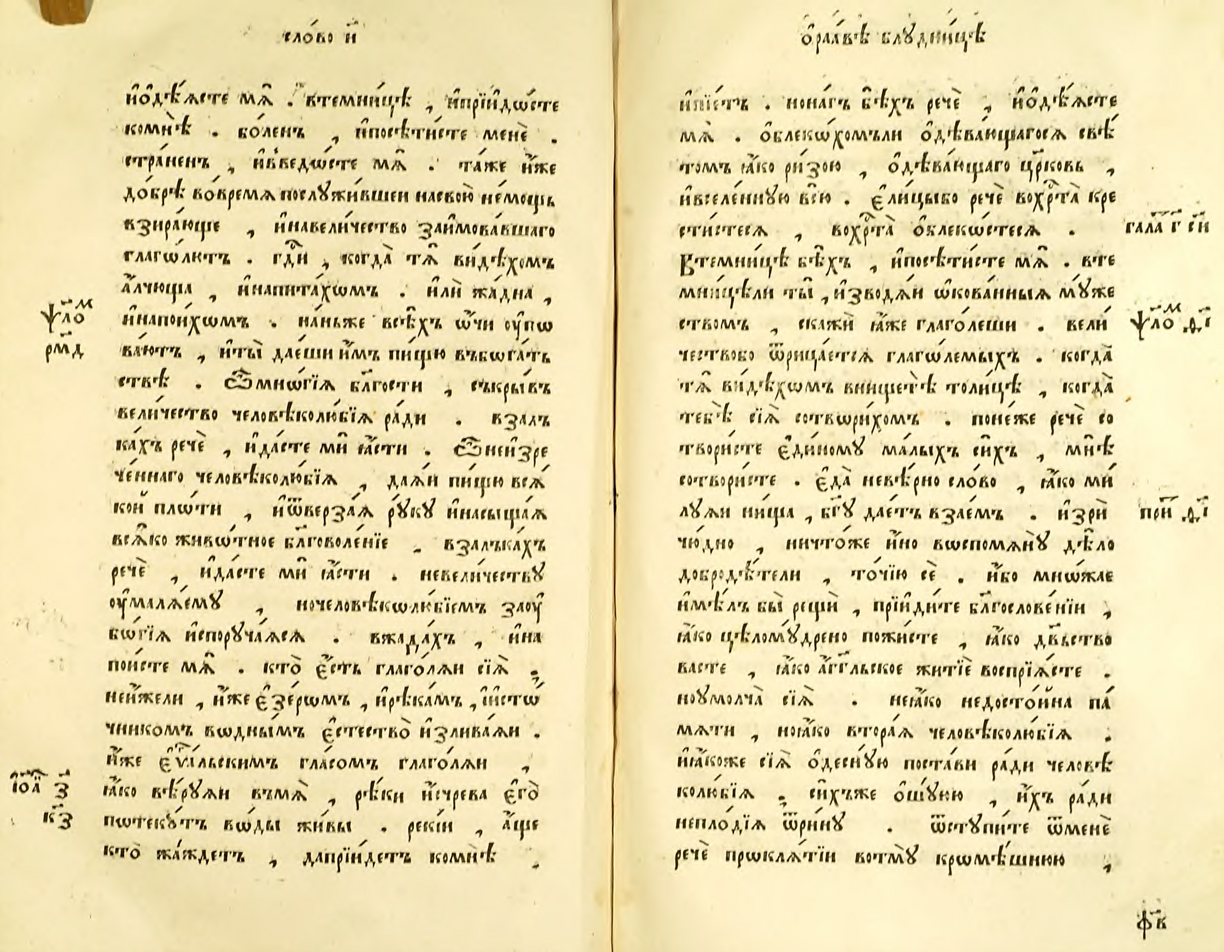 сло́во и҃
и҆ѻ҆дѣ́ѧсте мѧ̀ . втемни́цѣ , и҆прїидѡ́сте
комнѣ̀ . бо́ленъ , и҆посѣти́сте менѐ .
стра́ненъ , и҆введѡ́сте мѧ̀ . та́же и҆́же
до́брѣ во́времѧ послꙋжи́вшеи насвою̀ не́мощь
взира́юще , и҆навели́чество заимова́вшаго
глаго́лютъ . гдⷭ҇и , когда̀ тѧ̀ ви́дѣхомъ
а҆́лчюща , и҆напита́хѡмъ . и҆лѝ жа́дна ,
и҆напои́хѡмъ . на́ньже всѣ́хъ ѻ҆́чи ᲂу҆пѡ
ва́ютъ , и҆ты̀ дае́ши и҆̀мъ пи́щю въбога́тъ
ствѣ . ѽ мнѡ́гїѧ бл҃гости , съкры́въ
вели́чество человѣколю́бїѧ ра́ди . взалъ
ка́хъ речѐ , и҆да́сте мѝ ꙗ҆́сти . ѽ неи҆зре
че́ннаго человѣколю́бїѧ , даѧ́и пи́щю всѧ́
кои пло́ти , и҆ѿверза́ѧ рꙋ́кꙋ и҆насыща́ѧ
всѧ́ко живѡ́тное бл҃говоле́нїе . взалъка́хъ
речѐ , и҆да́сте мѝ ꙗ҆́сти . невели́чествꙋ
ᲂу҆малѧ́емꙋ , ночеловѣколю́бїемъ заᲂу҆
бо́гїѧ и҆спорꙋча́ѧсѧ . вжада́хъ , и҆на
пои́сте мѧ̀ . кто̀ є҆́сть глаго́лѧи сїѧ̀ .
неи҆́жели , и҆́же є҆зе́рѡмъ , и҆рѣка́мъ , и҆и҆стѡ́
чникомъ вѡ́днымъ є҆стество̀ и҆злива́ѧи .
и҆́же є҆ѵⷢ҇льскимъ гла́сомъ глаго́лѧи ,
ꙗ҆́ко вѣ́рꙋѧи въмѧ̀ , рѣ́ки и҆счре́ва є҆гѡ̀
потекꙋ́тъ во́ды жи́вы . реки́и , а҆́ще
кто̀ жа́ждетъ , дапрїи́детъ комнѣ̀ .
ѱало́ⷨ
рм҃д
і҆ѡ҃а з҃
к҃з
ѻ҆ ра́авѣ блꙋдни́цѣ
и҆пїе́тъ . нона́гъ бѣ́хъ речѐ , и҆ѻ҆дѣ́ѧсте
мѧ̀ . ѻ҆блеко́хомъли ѻ҆дѣва́ющагосѧ свѣ́
томъ ꙗ҆́ко ри́зою , ѻ҆дѣва́ющаго цр҃ковь ,
и҆вселе́ннꙋю всю̀ . є҆ли́цыбо речѐ вохрⷭ҇та̀ кре
сти́стесѧ , вохрⷭ҇та̀ ѻ҆блеко́стесѧ .
Втемни́цѣ бѣ́хъ , и҆посѣти́сте мѧ̀ . вте
мни́цѣли ты̀ , и҆зводѧ́и ѡ҆кова́нныѧ мꙋ́же
ствомъ , скажѝ ꙗ҆́же глаго́леши . вели́
чествобо ѿрица́етсѧ глаго́лемыхъ . когда̀
тѧ̀ ви́дѣхѡмъ внищетѣ̀ толи́цѣ , когда̀
тебѣ̀ сїѧ̀ сотвори́хомъ . поне́же речѐ со
твори́сте є҆ди́номꙋ ма́лыхъ си́хъ , мнѣ̀
сотвори́сте . є҆да̀ невѣ́рно сло́во , ꙗ҆́ко ми́
лꙋѧи ни́ща , бг҃ꙋ дае́тъ взае́мъ . и҆зрѝ
чю́дно , ничто́же и҆́но вѡспомѧнꙋ̀ дѣ́ло
добродѣ́тели , то́чїю сѐ . и҆́бо мнѡ́жае
и҆мѣ́лъ бы̀ рещѝ , прїиди́те бл҃гослове́нїи ,
ꙗ҆́ко цѣломꙋ́дрено пожи́сте , ꙗ҆́ко дѣ́вьство
васте , ꙗ҆́ко а҆́гг҃льское житїѐ воспрїѧ́сте .
ноумолча̀ сїѧ̀ . неꙗ҆́ко недосто́йна па́
мѧти , ноꙗ҆́ко втора́ѧ человѣколю́бїѧ .
и҆ꙗ҆́коже сїѧ̀ ѻ҆десн́ꙋю поста́ви ра́ди человѣ
колю́бїѧ . си́хъже ѻ҆шꙋ́юю , и҆́хъ ра́ди
непло́дїѧ ѿри́нꙋ . ѿстꙋпи́те ѿменѐ
речѐ проклѧ́тїи вотмꙋ̀ кромѣ́шнюю ,
гала́ⷮ г҃ с҃и
ѱало́ⷨ
при́ⷮ
ф҃в